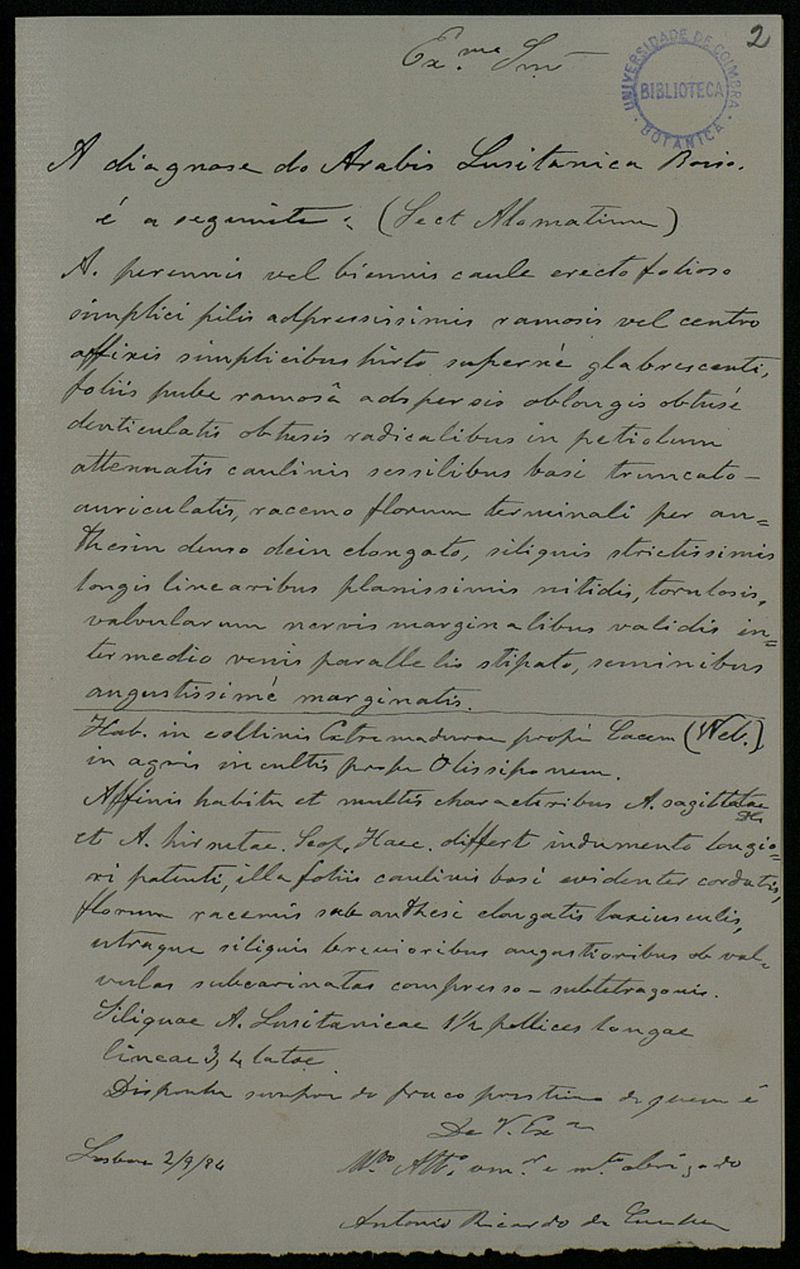 2
UNIVERSIDADE DE COIMBRA
BIBLIOTECA
BOTANICA
Ex.mo Snr
A diagnose do Arabis Lusitanica Boiss.
é a seguinte: (Sect Alomatium)
A. perennis vel biennis caule erecto folioso
simplici pilis adpressissimis ramosis vel centro
affixis simplicibus hirto supernè glabrescenti,
foliis pube ramosâ adspersis oblongis obtusè
denticulatis obtusis radicalibus in petiolum
attenuatis caulinis sessilibus basi truncato-
auriculatis, racemo florum terminali per an=
thesin denso dein elongato, siliquis strictissimis
longis linearibus planissimis nitidis, torulosis,
valvularum nervis marginalibus validis in=
termedio venis parallelis stipato, seminibus
angustissimè marginatis.
Hab. in collinis Extremadurae propè Cacem (Welv.)
in agris incultis prope Olissiponem.
Affinis habitu et multis characteribus A. sagittatae
DC.
et A. hirsutae. Scop. Haec. differt indumento longio=
ri patenti, illa foliis caulinis basi evidenter cordatis,
florum racemis sub anthesi elongatis laxiusculis,
utraque siliquis brevioribus angustioribus ob val=
vulas subcarinatas compresso-subtetragonis.
Siliquae A. Lusitanicae 1½ pollices longae
lineae 3/4 latae
Disponha sempre do pouco prestimo de quem é
De V. Ex.a
Lisboa 2/9/84
M.to Att.o am.o e m.to obrigado
Antonio Ricardo da Cunha